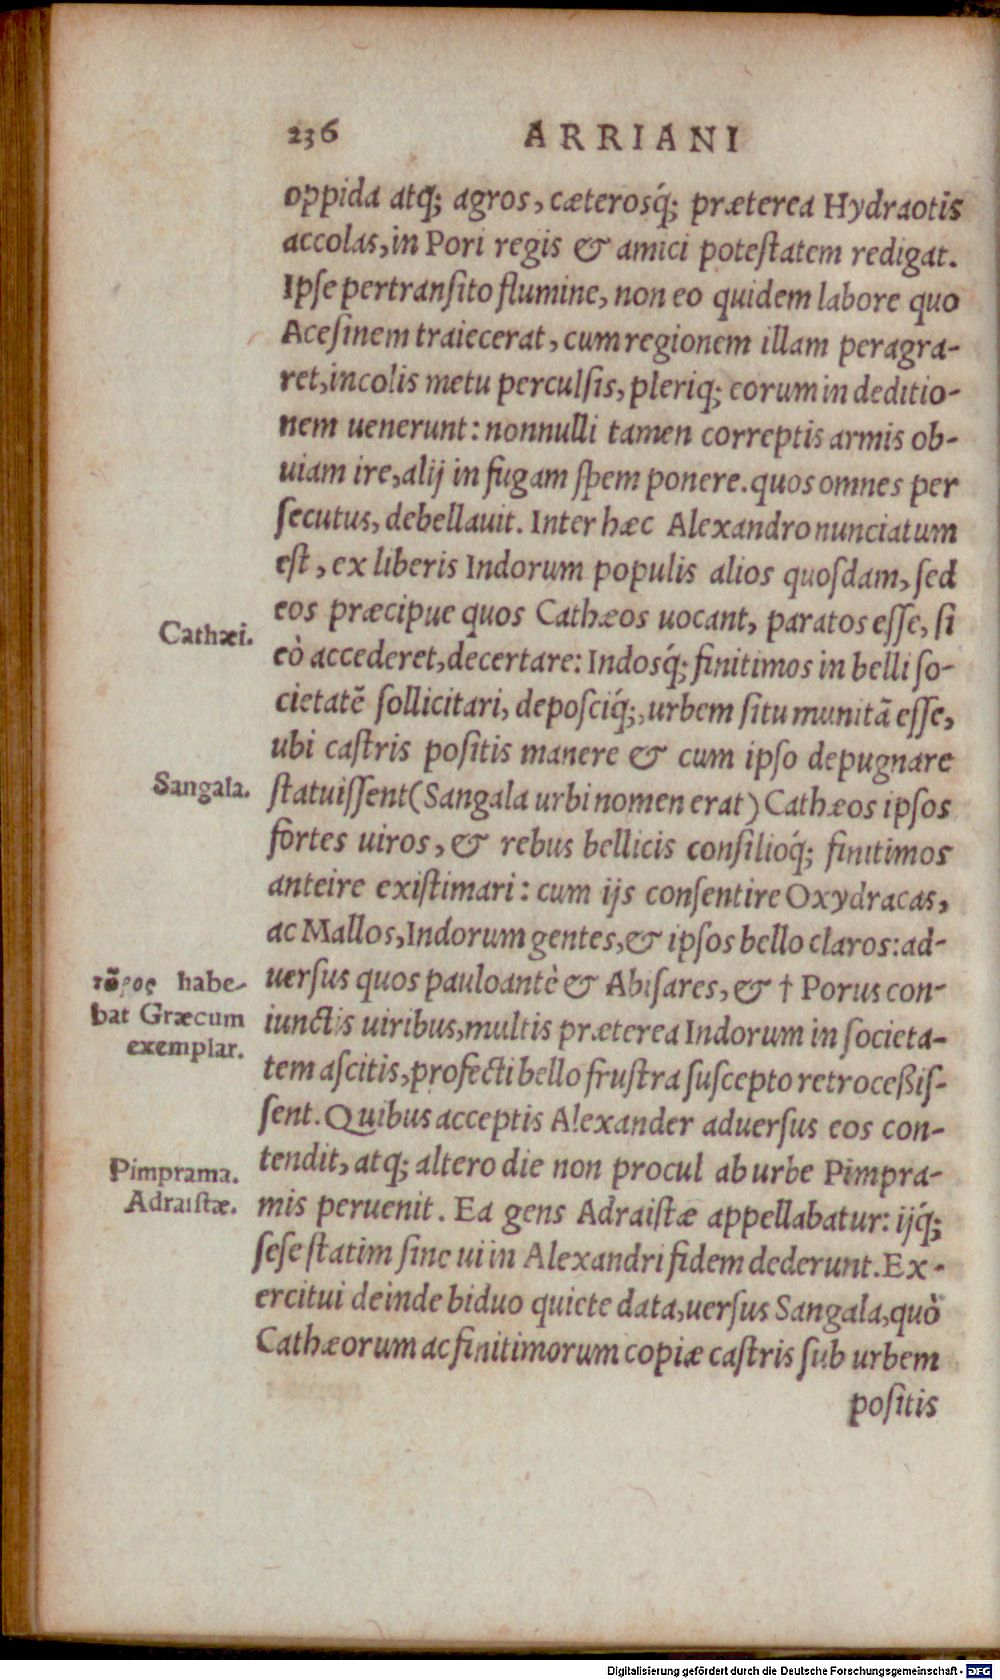 236 ARRIANI
oppida atq; agros, cæterosq́; præterea Hydraotis
accolas, in Pori regis & amici potestatem redigat.
Ipse pertransito flumine, non eo quidem labore quo
Acesinem traiecerat, cum regionem illam peragra-
ret, incolis metu perculsis, pleriq; eorum in deditio-
nem uenerunt: nonnulli tamen correptis armis ob-
uiam ire, alij in fugam spem ponere. quos omnes per
secutus, debellauit. Inter hæc Alexandro nunciatum
est, ex liberis Indorum populis alios quosdam, sed
eos præcipue quos Cathæos uocant, paratos esse, si
Cathæi.
eò accederet, decertare: Indosq́; finitimos in belli so-
cietatē sollicitari, deposciq́;, urbem situ munitā esse,
ubi castris positis manere & cum ipso depugnare
Sangala.
statuissent (Sangala urbi nomen erat) Cathæos ipsos
fortes uiros, & rebus bellicis consilioq́; finitimos
anteire existimari: cum ijs consentire Oxydracas,
ac Mallos, Indorum gentes, & ipsos bello claros: ad-
uersus quos pauloantè & Abisares, & † Porus con-
habe-
bat Græcum
exemplar.
iunctis uiribus, multis præterea Indorum in societa-
tem ascitis, profecti bello frustra suscepto retrocessis-
sent. Quibus acceptis Alexander aduersus eos con-
tendit, atq; altero die non procul ab urbe Pimpra-
Pimprama.
Adraistæ.
mis peruenit. Ea gens Adraistæ appellabatur: ijq́;
sese statim sine ui in Alexandri fidem dederunt. Ex-
ercitui deinde biduo quiete data, uersus Sangala, quò
Cathæorum ac finitimorum copiæ castris sub urbem
positis
Digitalisierung gefördert durch die Deutsche Forschungsgemeinschaft - DFG